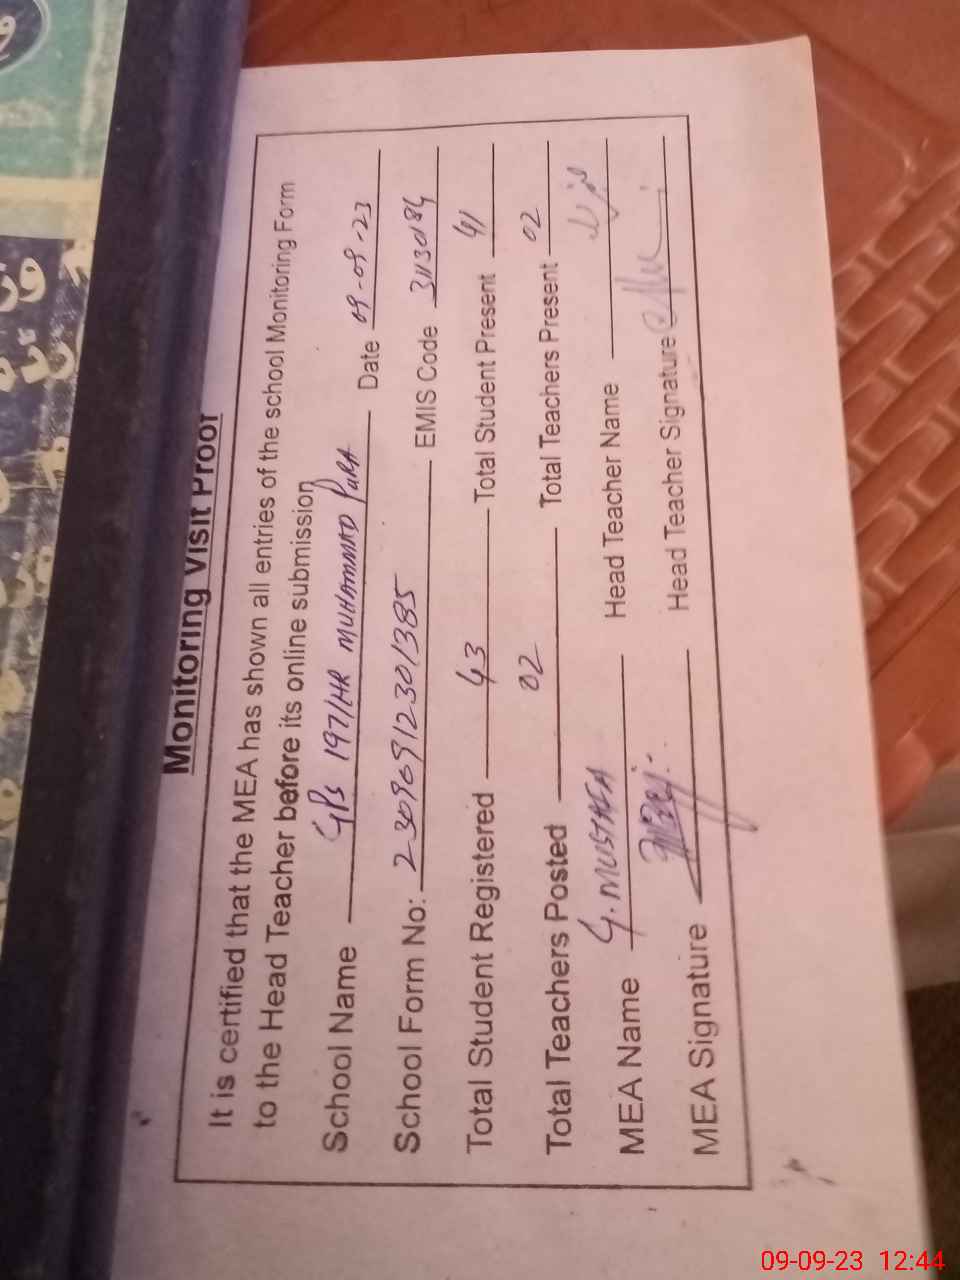 Monitoring Visit Proof
It is certified that the MEA has shown all entries of the school Monitoring Form
to the Head Teacher before its online submission
School Name GPS 197/HR MUHAMMAD PURA Date 09-09-23
School Form No: 23096912301385 EMIS Code 31130184
Total Student Registered 43 Total Student Present 41
Total Teachers Posted 02 Total Teachers Present 02
MEA Name G. MUSTAFA Head Teacher Name
MEA Signature Head Teacher Signature
09-09-23 12:44